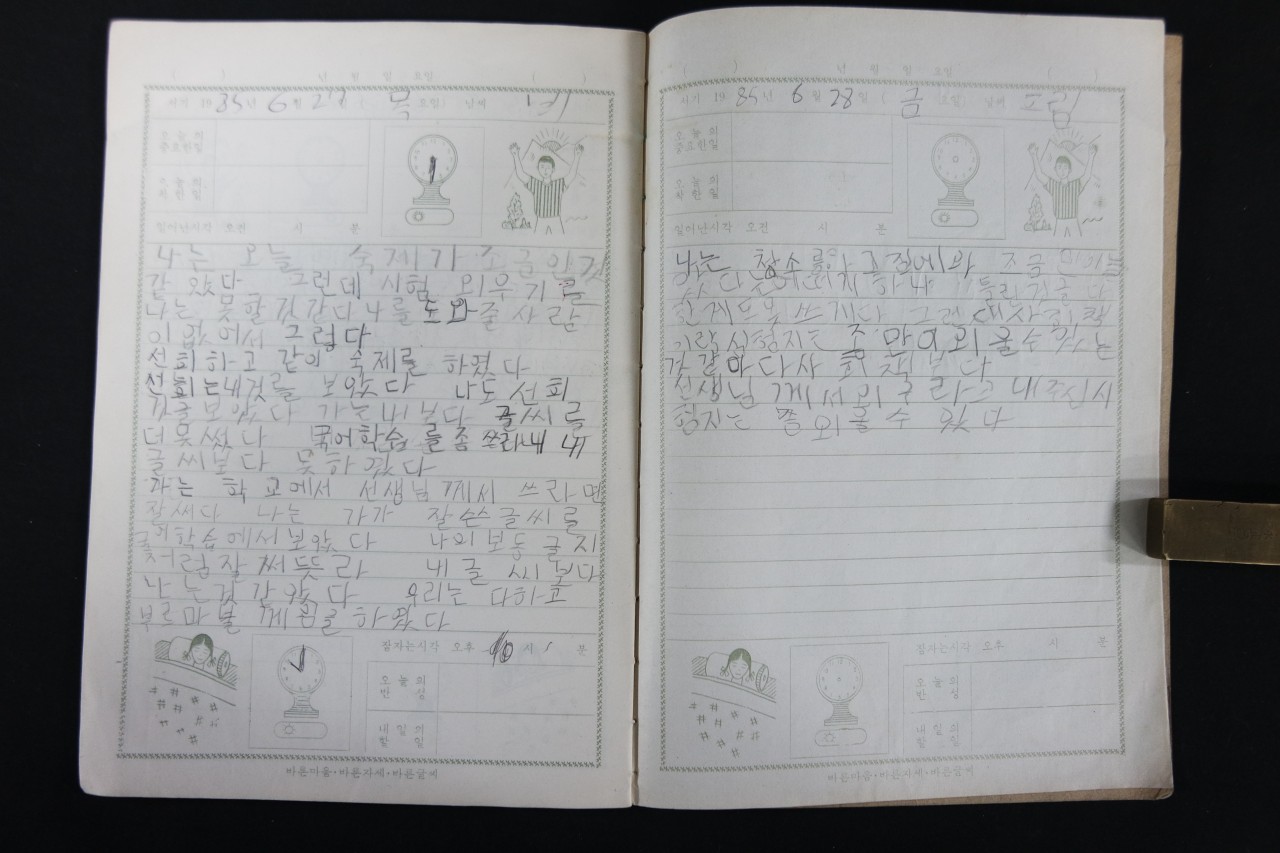 ( ) 년 월 일 요일 ( )
서기 19 85년 6월 27일 ( 목 요일) 날씨 비
오늘의
중요한일
오늘의
착한일
일어난시각 오전 시 분
나는 오늘 숙제가 조금인것
같았다 그런데 시험 외우기를
나는 못할것간다 나를 도와줄 사람
이 없어서 그렇다
선희하고 같이 숙제를 하였다
선희는내것를 보았다 나도 선희
것을보았다 가는내보다 글씨를
더못썼다 국어학습 를좀 쓰라내 내
글씨보다 못하겄다
가는 학교에서 선생님께서 쓰라면
잘써다 나는 가가 잘쓴글씨를
학습에서보았다 나의보통글자
처럼잘써듯라 내글씨보다
나는것간았다 우리는 다하고
부르마불께임를하였다
잠자는시각 오후 10시 분
오늘의
반성
내일의
할일
바른마음·바른자세·바른글씨
( ) 년 월 일 요일 ( )
서기 19 85년 6월 28일 ( 금 요일) 날씨 흐림
오늘의
중요한일
오늘의
착한일
일어난시각 오전 시 분
나는 조금
한게도못쓰게다 그런대사회책
시험지는 조마야외울수있는
것같아다사 회책보다
선생님께서외우라고내주신시
험지는 쫌외울수 있다
잠자는시각 오후 시 분
오늘의
반성
내일의
할일
바른마음·바른자세·바른글씨